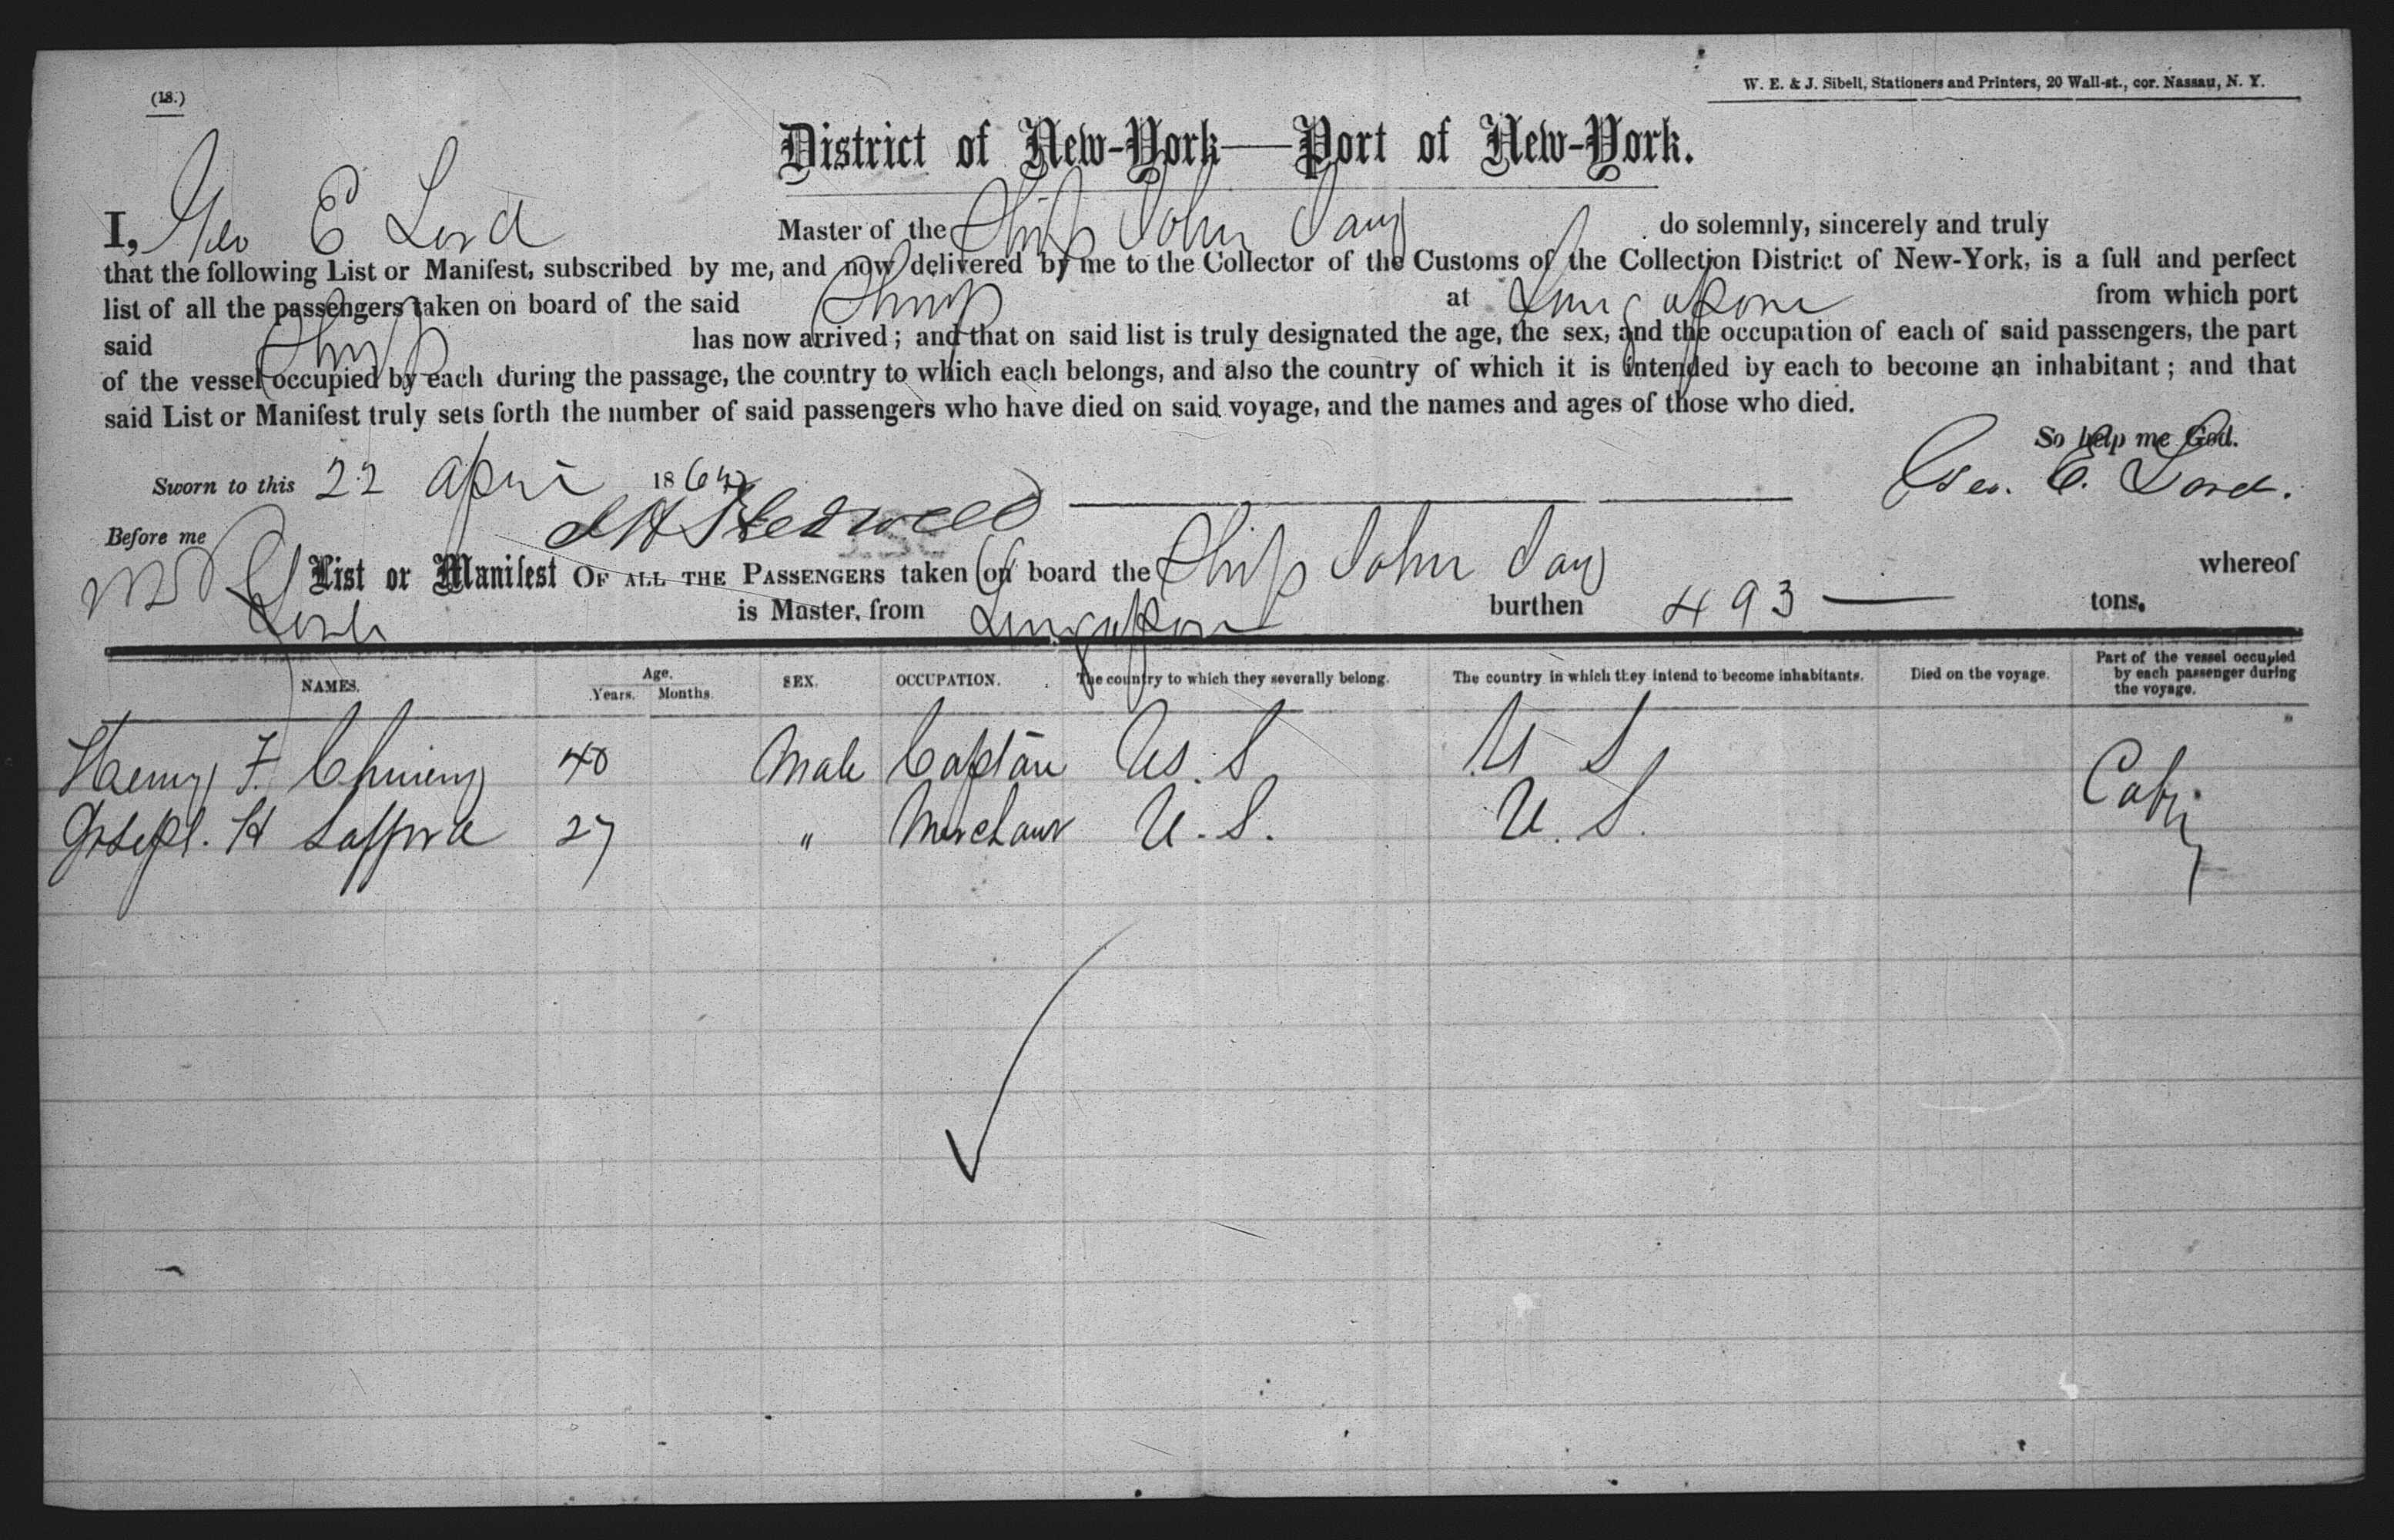 (18.)
W. E. & J. Sibell, Stationers and Printers, 20 Wall-st., cor. Nassau, N. Y.
District of New-York—Port of New-York.
I, Geo E Lord Master of the Ship John Jay do solemnly, sincerely and truly
that the following List or Manifest, subscribed by me, and now delivered by me to the Collector of the Customs of the Collection District of New-York, is a full and perfect
list of all the passengers taken on board of the said Ship at Singapore from which port
said Ship has now arrived; and that on said list is truly designated the age, the sex, and the occupation of each of said passengers, the part
of the vessel occupied by each during the passage, the country to which each belongs, and also the country of which it is intended by each to become an inhabitant; and that
said List or Manifest truly sets forth the number of said passengers who have died on said voyage, and the names and ages of those who died.
So help me God.
Sworn to this 22 April 186 Geo. E. Lord.
Before me
List or Manifest OF ALL THE PASSENGERS taken on board the Ship John Jay whereof
Lord is Master, from Singapore burthen 493 — tons.
NAMES. Age. Years. Months. SEX. OCCUPATION. The country to which they severally belong. The country in which they intend to become inhabitants. Died on the voyage. Part of the vessel occupied by each passenger during the voyage.
Henry F. 40 Male Captain U.S. U S Cabin
Joseph H 27 " Merchant U.S. U.S.